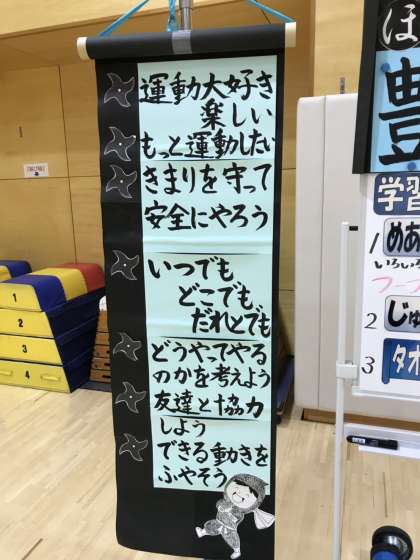 運動大好き
楽しい
もっと運動したい
きまりを守って
安全にやろう
いつでも
どこでも、
だれとでも
どうやってやる
のかを考えよう
友達と協力
しよう
できる動きを
ふやそう
1
2
3
4
ほ
豊
学習
1 めあ
いろいろ
フープ
2 じゅ
3 タオ